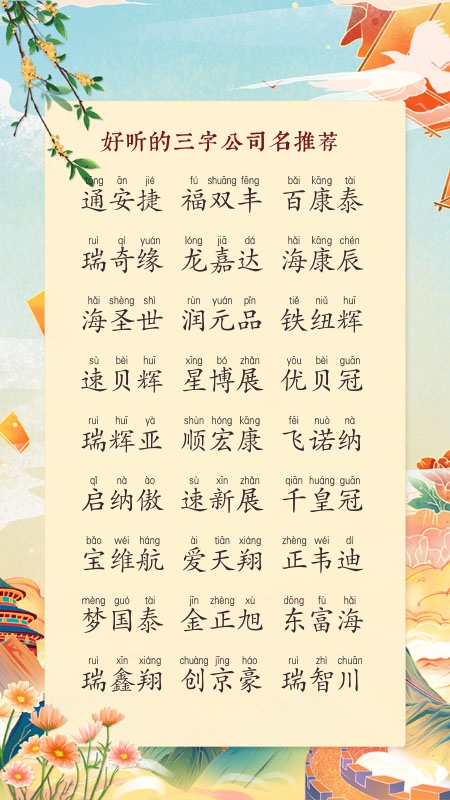 好听的三字公司名推荐
tōng ān jié fú shuāng fēng bǎi kāng tài
通安捷 福双丰 百康泰
ruì qí yuán lóng jiā dá hǎi kāng chén
瑞奇缘 龙嘉达 海康辰
hǎi shèng shì rùn yuán pǐn tiě niǔ huī
海圣世 润元品 铁纽辉
sù bèi huī xīng bó zhǎn yōu bèi guān
速贝辉 星博展 优贝冠
ruì huī yà shùn hóng kāng fēi nuò nà
瑞辉亚 顺宏康 飞诺纳
qǐ nà ào sù xīn zhǎn qiān huáng guān
启纳傲 速新展 千皇冠
bǎo wéi háng ài tiān xiáng zhèng wéi dí
宝维航 爱天翔 正韦迪
mèng guó tài jīn zhèng xù dōng fù hǎi
梦国泰 金正旭 东富海
ruì xīn xiáng chuàng jīng háo ruì zhì chuān
瑞鑫翔 创京豪 瑞智川